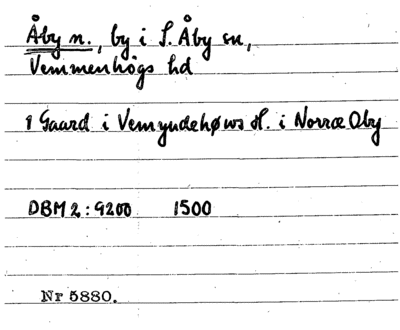 Åby n., by i S. Åby sn,
Vemmenhögs hd
1 Gaard i Vemyndehøws H. i Norræ Oby
DBM 2: 9200 1500
Nr 5880.